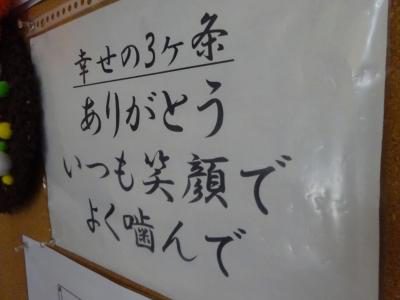 幸せの3ケ条
ありがとう
いつも笑顔で
よく噛んで